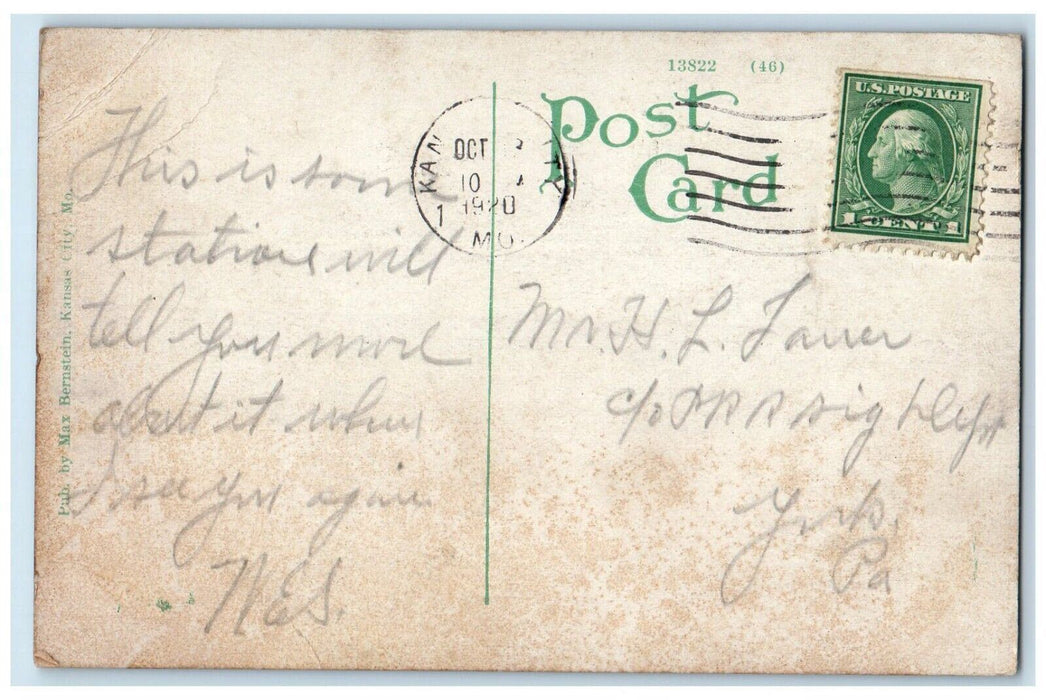 13822 (46)
Post
Card
U.S. POSTAGE
1 CENT 1
OCT
10
1
1920
MO.
This is some
station will
tell you more
about it when
I see you again
W.E.S.
Mr. H. L.
c/o P.R.R. Sig Dept
York,
Pa
Pub. by Max Bernstein, Kansas City, Mo.